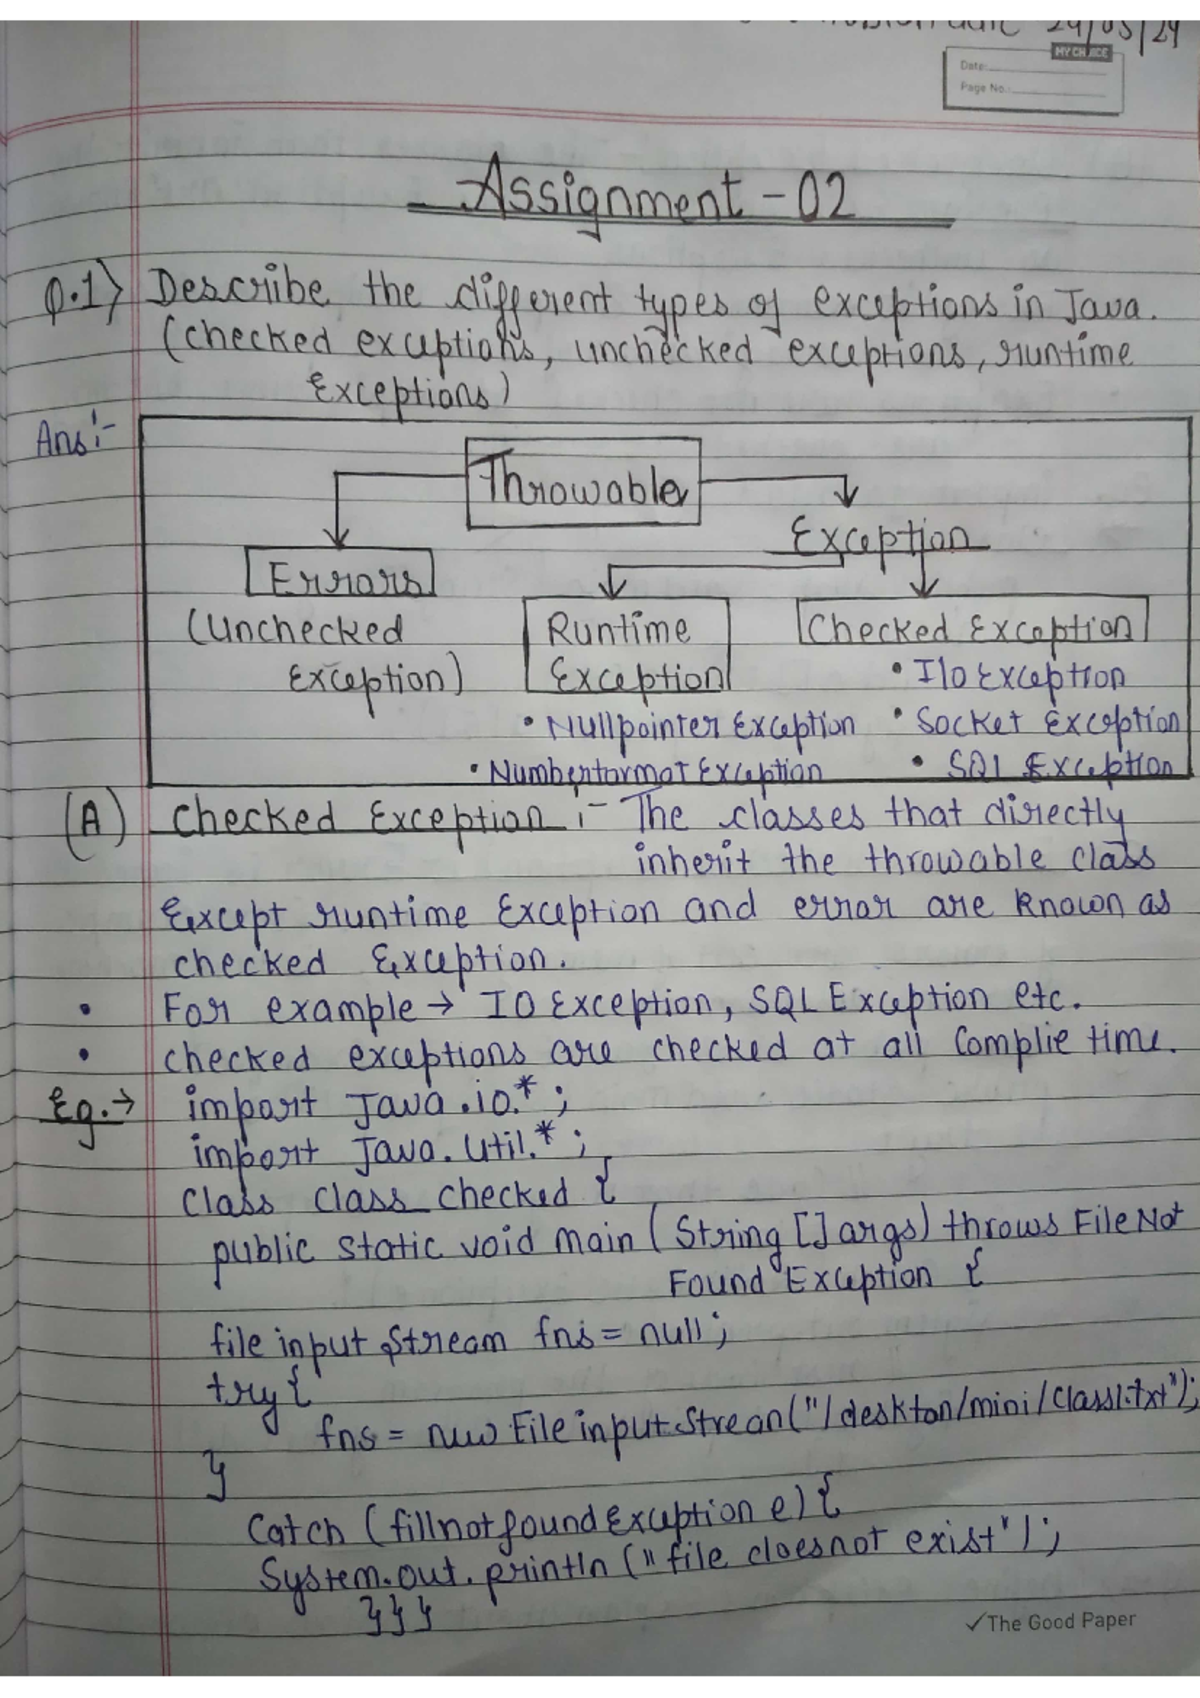 24/05/24
MY CHOICE
Date:
Page No.:
Assignment - 02
Q.1) Describe the different types of exceptions in Java.
(checked exceptions, unchecked exceptions, runtime
Exceptions)
Ans:-
Throwable
Exception
Errors
(Unchecked
Exception)
Runtime
Exception
• Nullpointer Exception
• Numberformat Exception
Checked Exception
• I/O Exception
• Socket Exception
• SQL Exception
(A) Checked Exception :- The classes that directly
inherit the throwable class
Except runtime Exception and error are known as
checked Exception.
• For example → IO Exception, SQL Exception etc.
• checked exceptions are checked at all Complie time.
Eg. → import Java.io.*;
import Java.util.*;
Class class checked {
public static void main (String [] args) throws FileNot
Found Exception {
file input Stream fns = null;
try {
fns = new File input Strean ("/deskton/mini/Class1.txt");
}
Catch (fillnotfound Exception e) {
System.out.println ("file doesnot exist");
}}}
✓The Good Paper